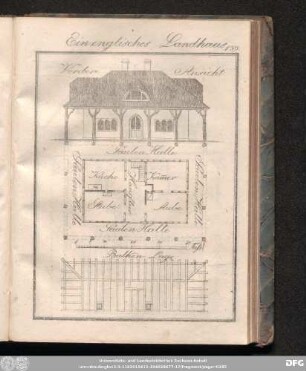 Ein englisches Landhaus
Vordere Ansicht
Säulen Halle
Säulen Halle
Säulen Halle
Küche
Kamer
Stube
Stube
Säulen Halle
Balken Lage
Universitäts- und Landesbibliothek Sachsen-Anhalt
DFG